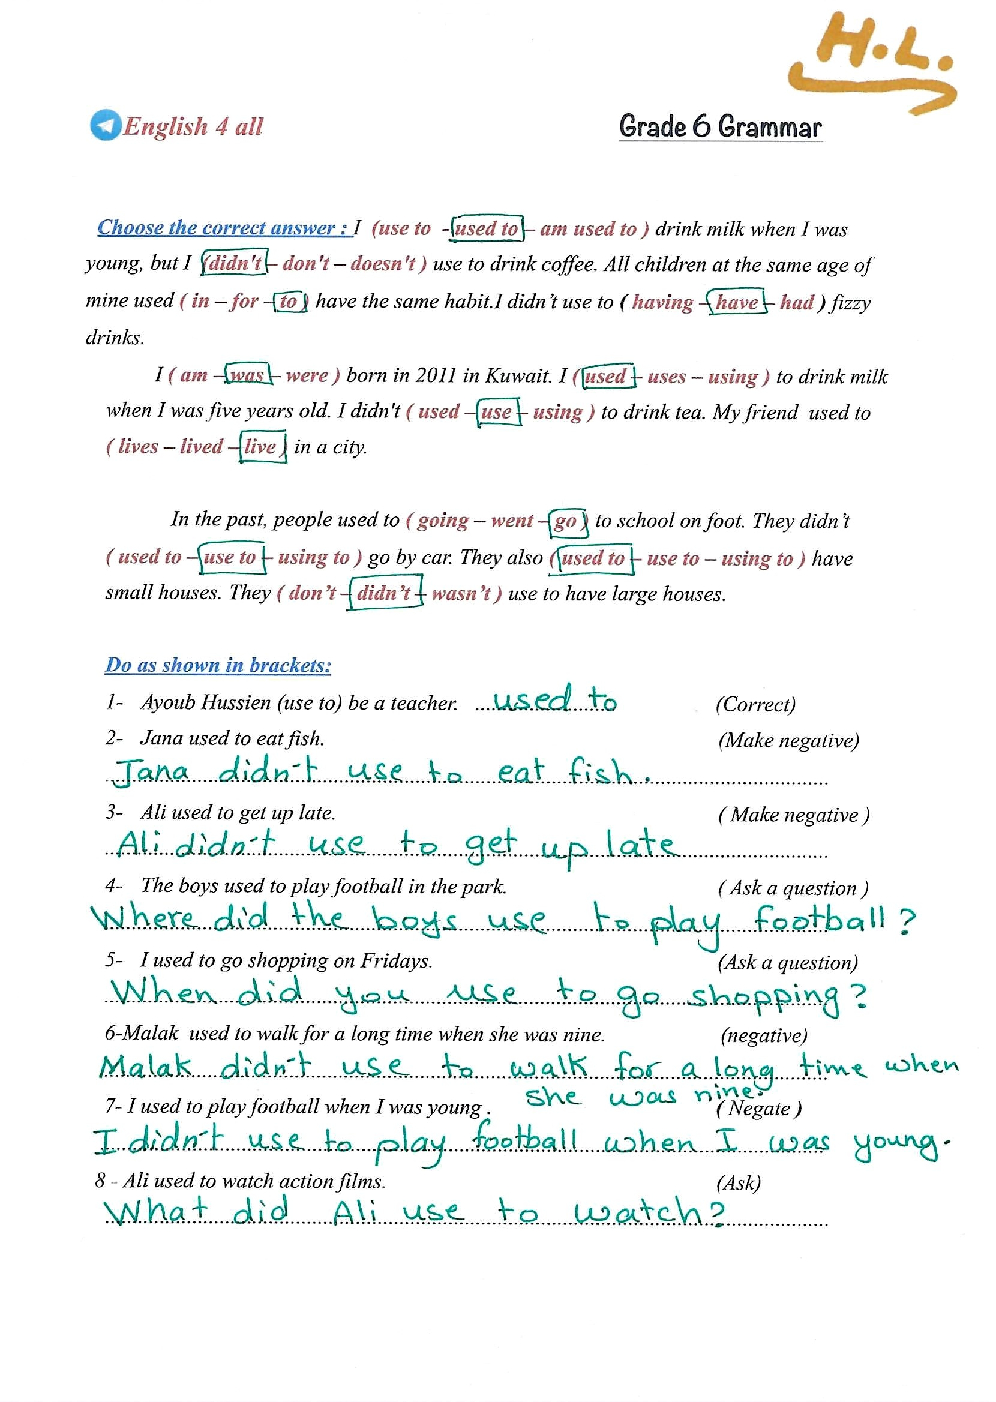 H.L.
English 4 all
Grade 6 Grammar
Choose the correct answer : I (use to - used to - am used to ) drink milk when I was
young, but I (didn't – don't – doesn't ) use to drink coffee. All children at the same age of
mine used ( in – for – to ) have the same habit.I didn't use to ( having – have – had ) fizzy
drinks.
I ( am – was – were ) born in 2011 in Kuwait. I ( used – uses – using ) to drink milk
when I was five years old. I didn't ( used – use – using ) to drink tea. My friend used to
( lives – lived – live ) in a city.
In the past, people used to ( going – went – go ) to school on foot. They didn't
( used to – use to – using to ) go by car. They also ( used to – use to – using to ) have
small houses. They ( don't – didn't – wasn't ) use to have large houses.
Do as shown in brackets:
1- Ayoub Hussien (use to) be a teacher. ...used to (Correct)
2- Jana used to eat fish. (Make negative)
Jana didn't use to eat fish.
3- Ali used to get up late. ( Make negative )
Ali didn't use to get up late
4- The boys used to play football in the park. ( Ask a question )
Where did the boys use to play football ?
5- I used to go shopping on Fridays. (Ask a question)
When did you use to go shopping?
6-Malak used to walk for a long time when she was nine. (negative)
Malak didn't use to walk for a long time when
she was nine.
7- I used to play football when I was young . ( Negate )
I didn't use to play football when I was young.
8 - Ali used to watch action films. (Ask)
What did Ali use to watch?